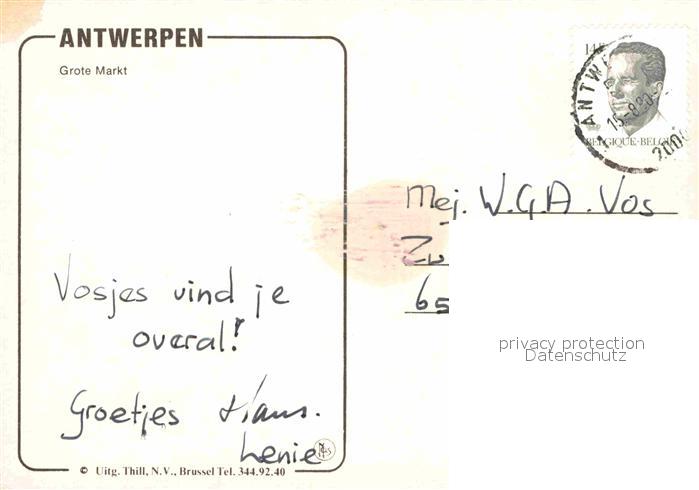 ANTWERPEN
Grote Markt
Vosjes vind je
overal!
Groetjes Hans.
Lenie
© Uitg. Thill, N.V., Brussel Tel. 344.92.40
14F
BELGIQUE-BELGIË
ANTW
15-8
Mej. W.G.A. Vos
Zu
65
privacy protection
Datenschutz